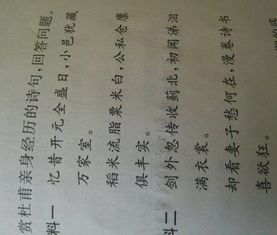 赏杜甫亲身经历的诗句,回答问题。
料一 忆昔开元全盛日,小邑犹藏
万家室。
稻米流脂粟米白,公私仓廪
俱丰实。
料二 剑外忽传收蓟北,初闻涕泪
满衣裳。
却看妻子愁何在,漫卷诗书
喜欲狂。